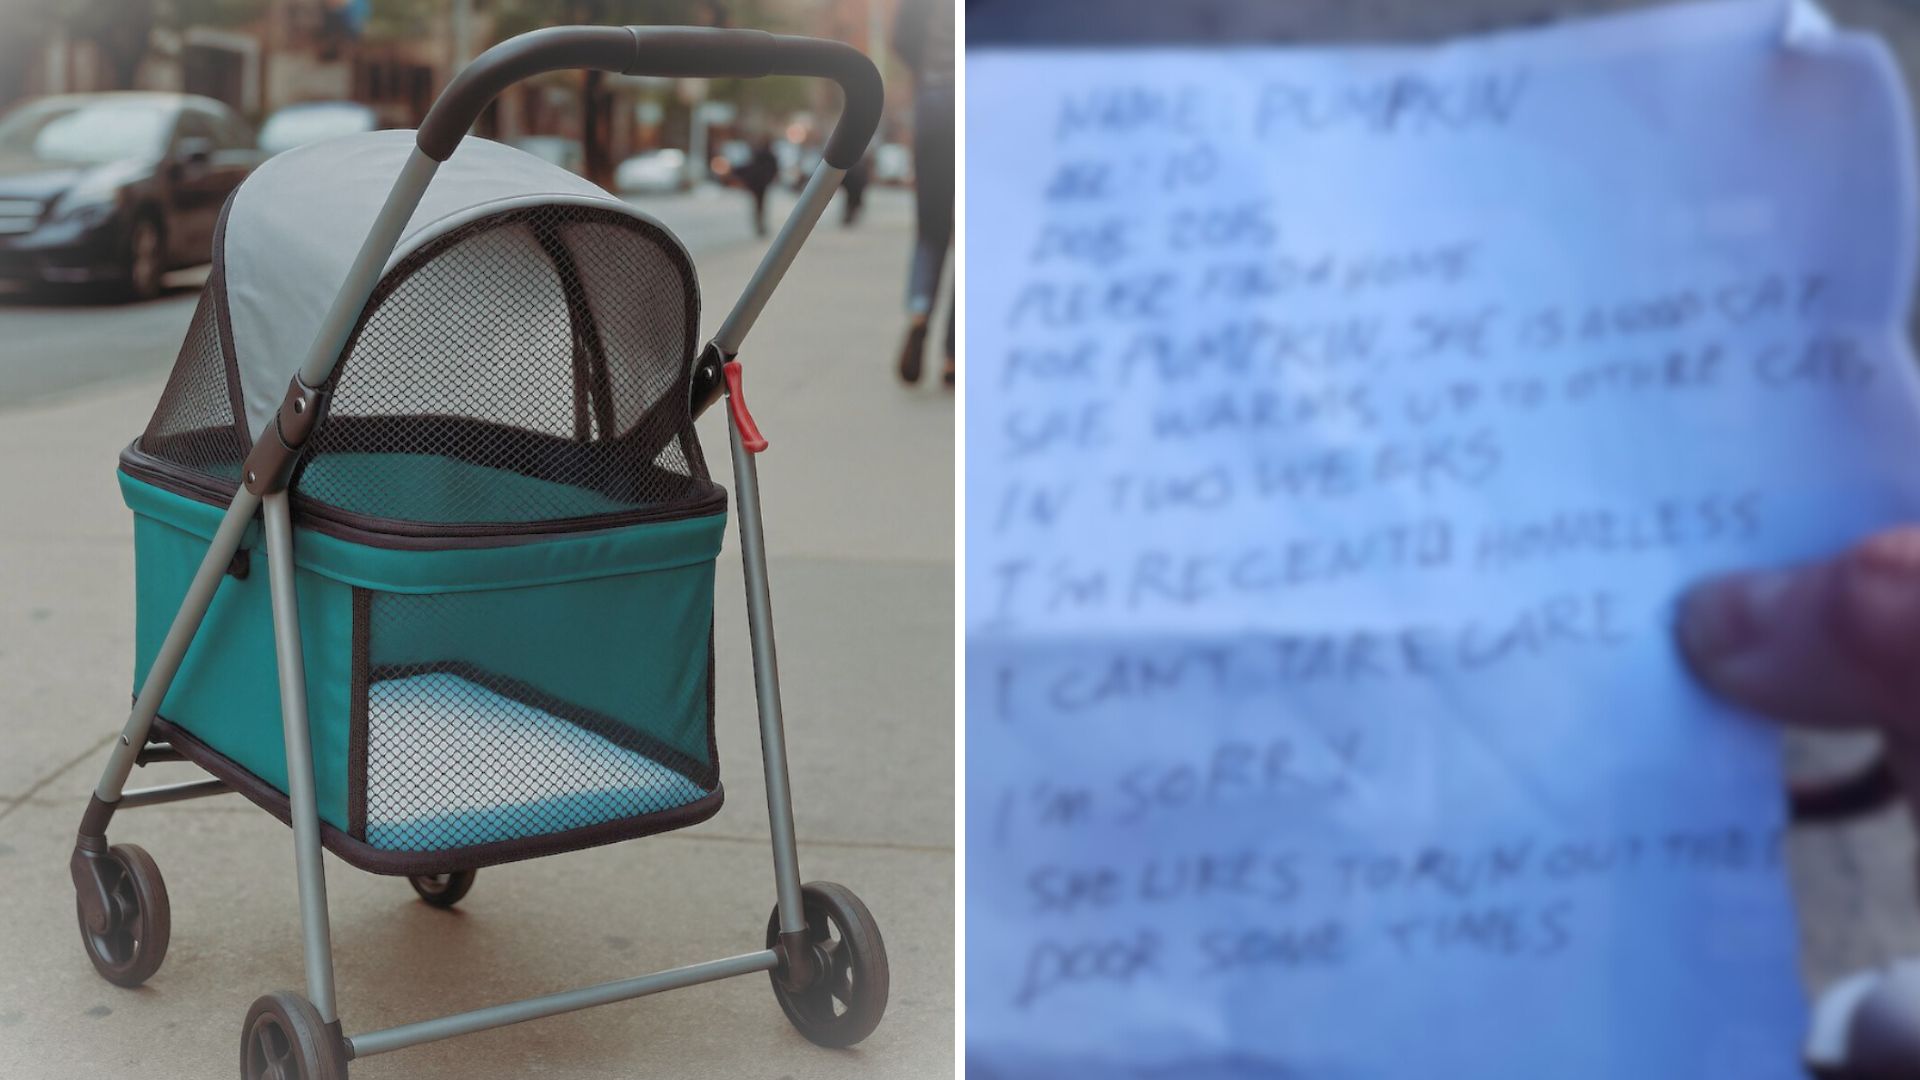 NAME: PUMPKIN
AGE: 10
DOB: 2015
PLEASE FIND A HOME
FOR PUMPKIN, SHE IS A GOOD CAT
SHE WARMS UP TO OTHER CATS
IN TWO WEEKS
I'M RECENTLY HOMELESS
I CAN'T TAKE CARE
I'M SORRY
SHE LIKES TO RUN OUT THE
DOOR SOME TIMES